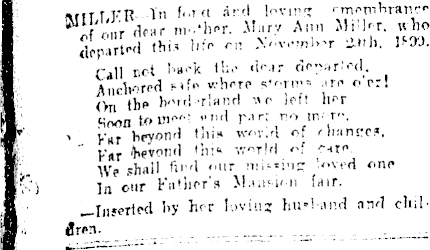 MILLER—In fond and loving remembrance
of our dear mother, Mary Ann Miller, who
departed this life on November
Call not back the dear departed,
Anchored safe where storms are o'er!
On the borderland we left her
Soon to meet and part no more,
Far beyond this world of changes,
Far beyond this world of care,
We shall find our missing loved one
In our Father's Mansion fair.
—Inserted by her loving husband and chil-
dren.